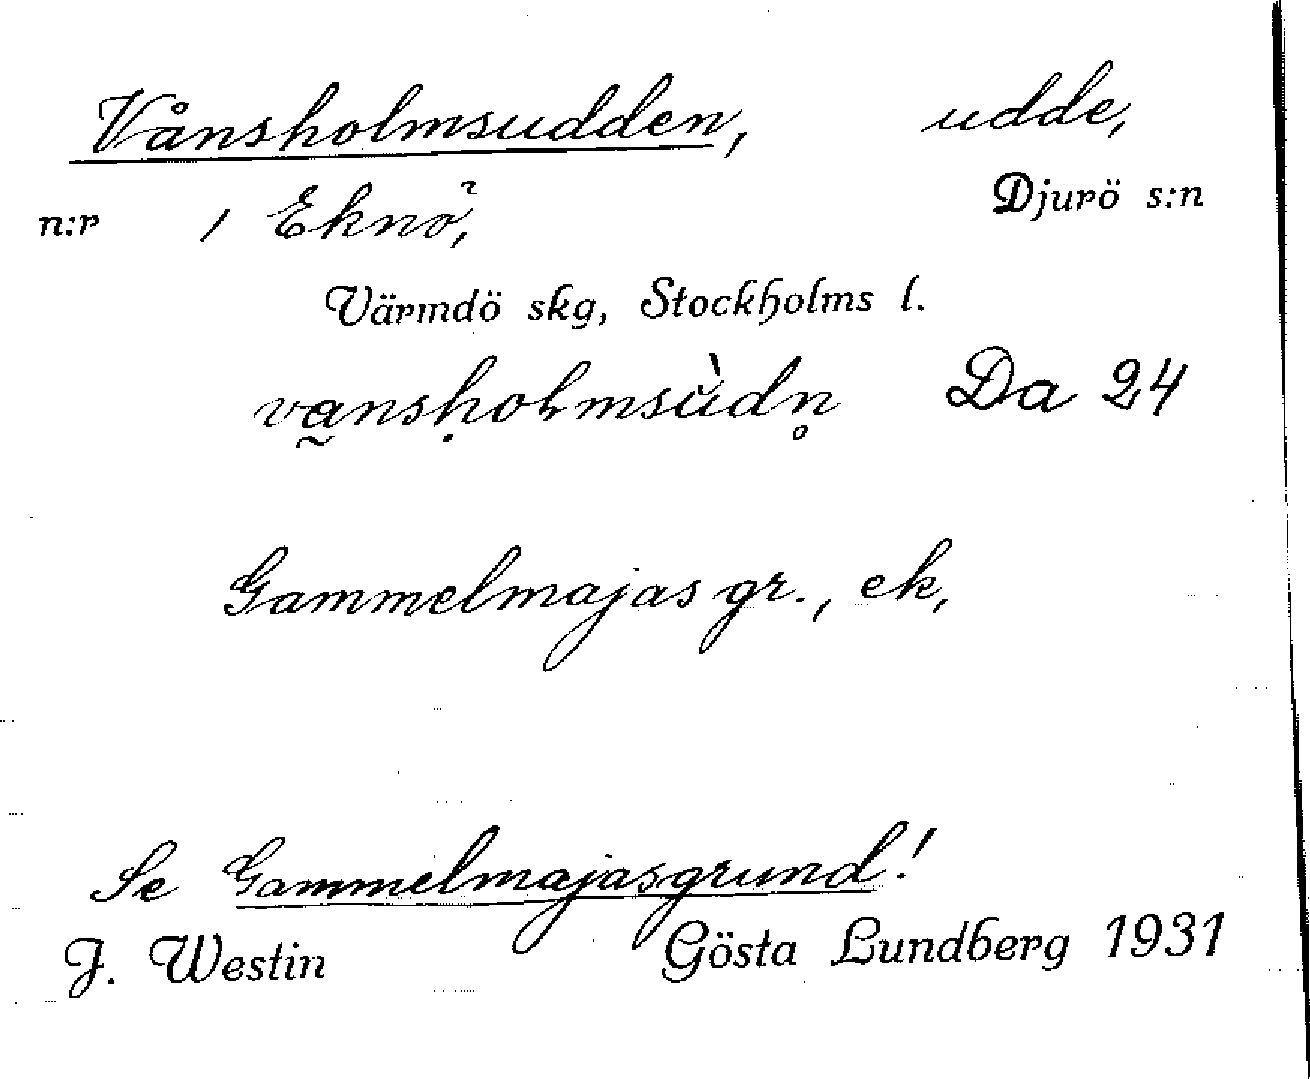 Vånsholmsudden, udde,
n:r 1 Eknö², Djurö s:n
Värmdö skg, Stockholms l.
va̰nsḥolmsùdn̥ Da 24
Gammelmajas gr., ek,
Se Gammelmajasgrund!
J. Westin Gösta Lundberg 1931